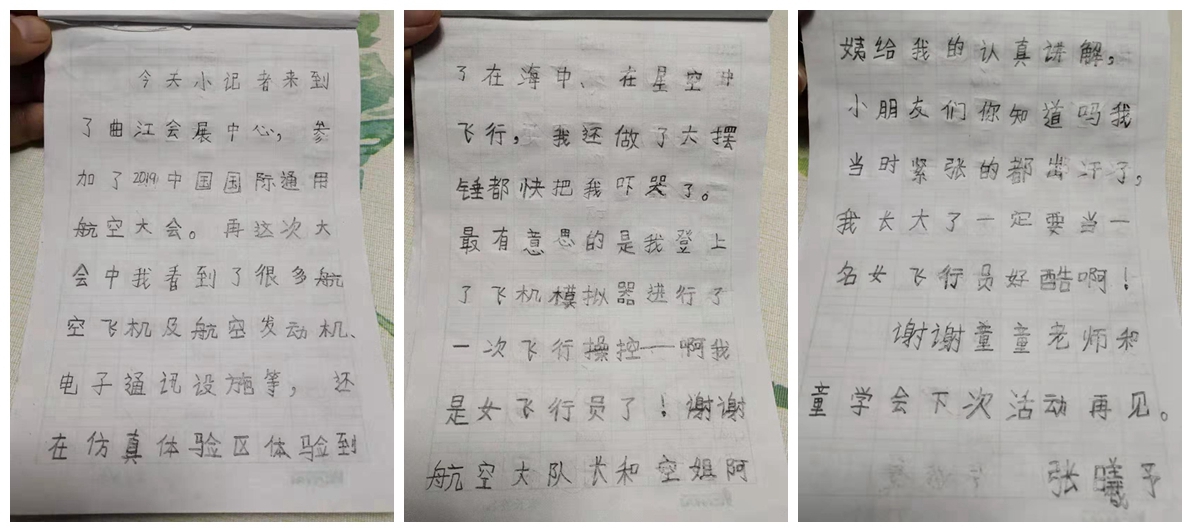 今天小记者来到
了曲江会展中心，参
加了2019中国国际通用
航空大会。再这次大
会中我看到了很多航
空飞机及航空发动机、
电子通讯设施等，还
在仿真体验区体验到
了在海中、在星空中
飞行，我还做了大摆
锤都快把我吓哭了。
最有意思的是我登上
了飞机模拟器进行了
一次飞行操控——啊我
是女飞行员了！谢谢
航空大队长和空姐阿
姨给我的认真讲解，
小朋友们你知道吗我
当时紧张的都出汗了，
我长大了一定要当一
名女飞行员好酷啊！
谢谢童童老师和
童学会下次活动再见。
张曦予